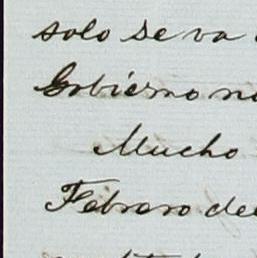 solo se va
Gobierno
Mucho
Febrero de